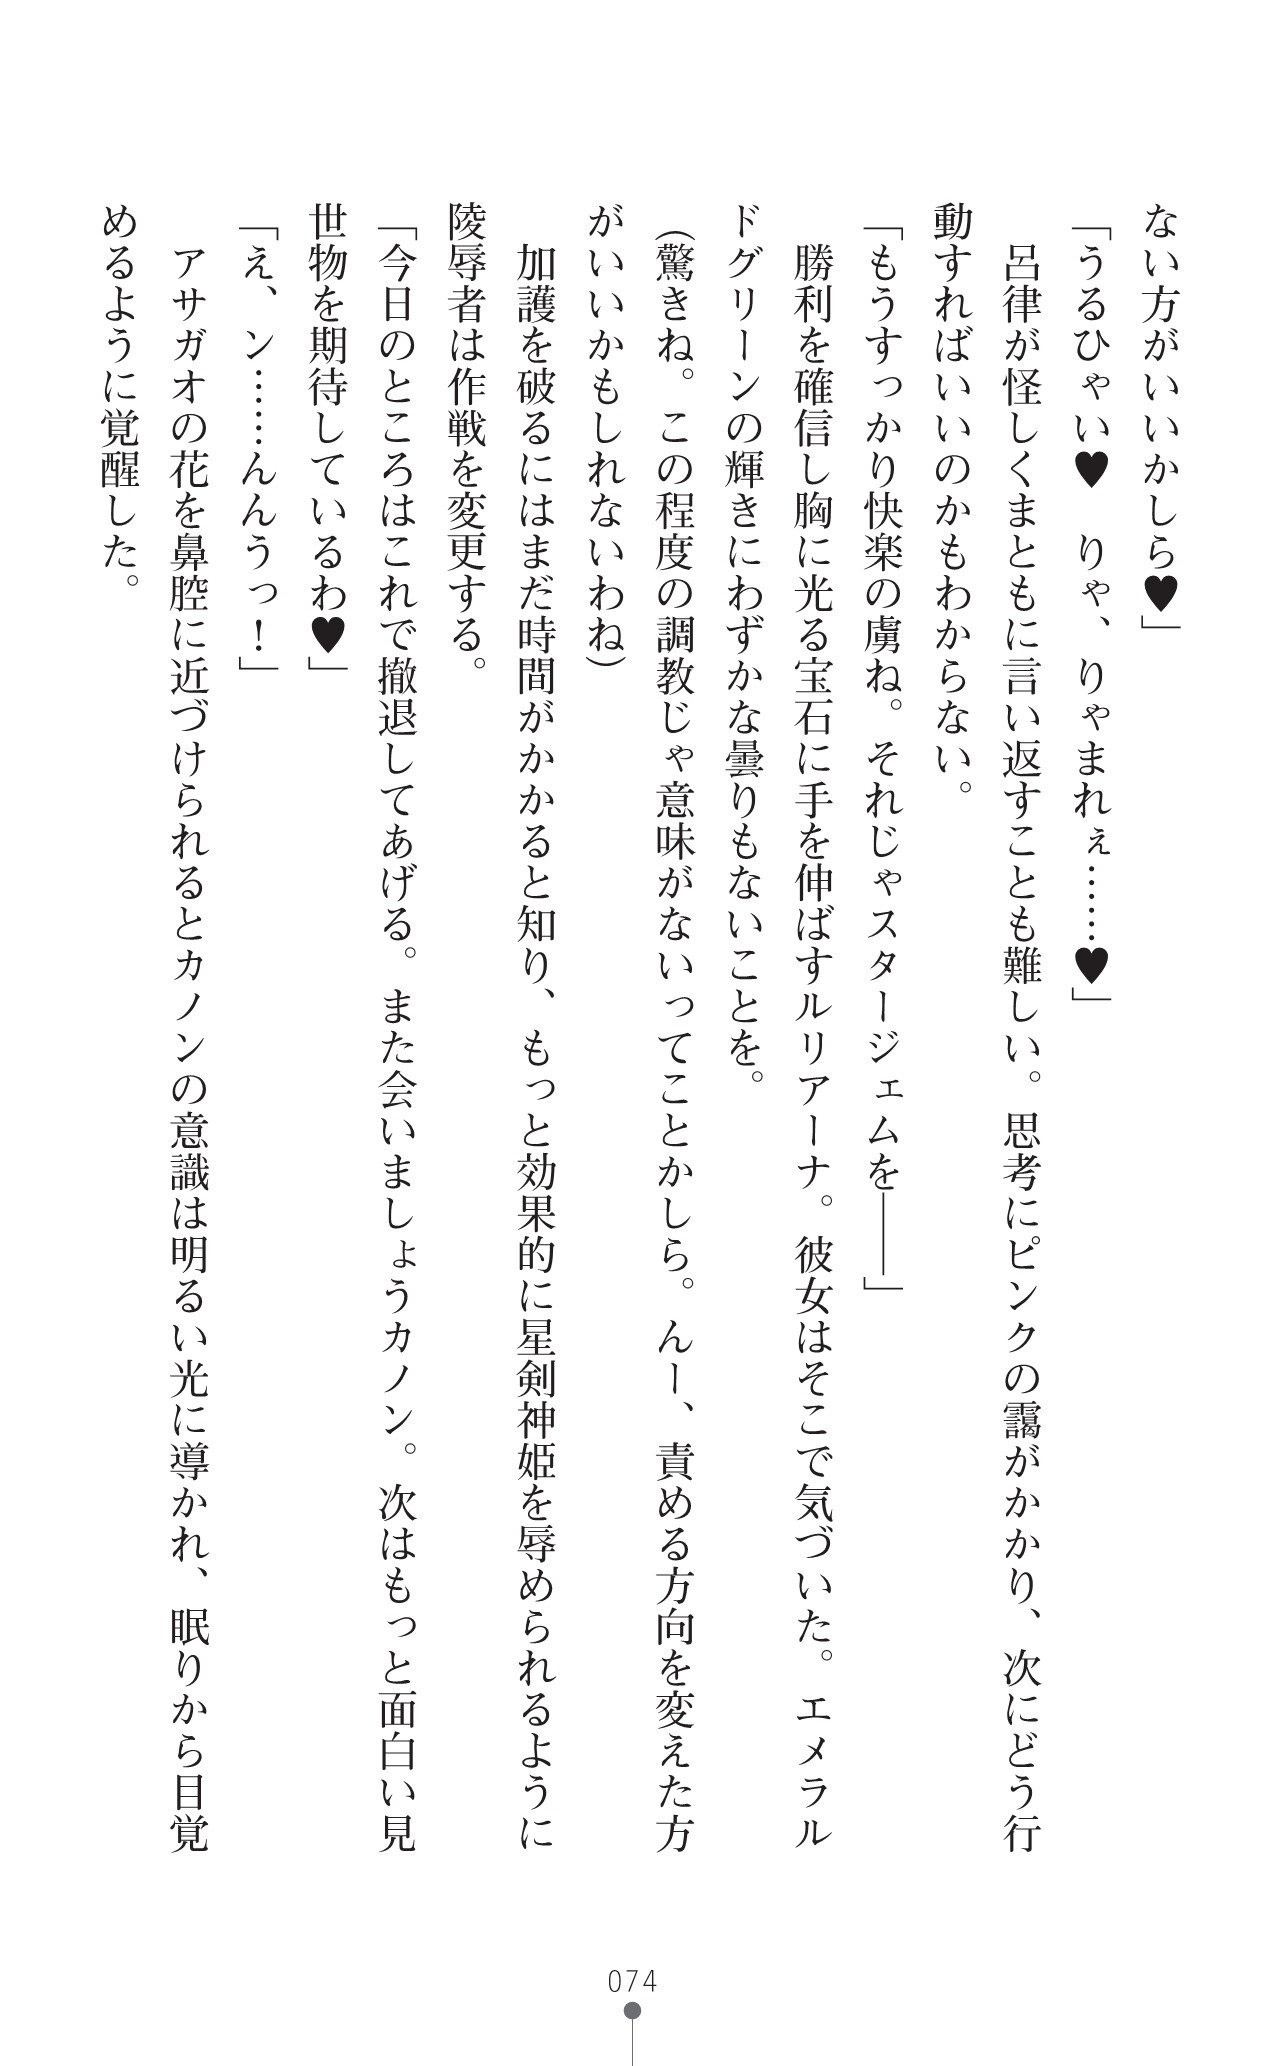 ない方がいいかしら♥」
「うるひゃい♥　りゃ、りゃまれぇ……♥」
　呂律が怪しくまともに言い返すことも難しい。思考にピンクの靄がかかり、次にどう行
動すればいいのかもわからない。
「もうすっかり快楽の虜ね。それじゃスタージェムを――」
　勝利を確信し胸に光る宝石に手を伸ばすルリアーナ。彼女はそこで気づいた。エメラル
ドグリーンの輝きにわずかな曇りもないことを。
（驚きね。この程度の調教じゃ意味がないってことかしら。んー、責める方向を変えた方
がいいかもしれないわね）
　加護を破るにはまだ時間がかかると知り、もっと効果的に星剣神姫を辱められるように
陵辱者は作戦を変更する。
「今日のところはこれで撤退してあげる。また会いましょうカノン。次はもっと面白い見
世物を期待しているわ♥」
「え、ン……んんうっ！」
　アサガオの花を鼻腔に近づけられるとカノンの意識は明るい光に導かれ、眠りから目覚
めるように覚醒した。
074